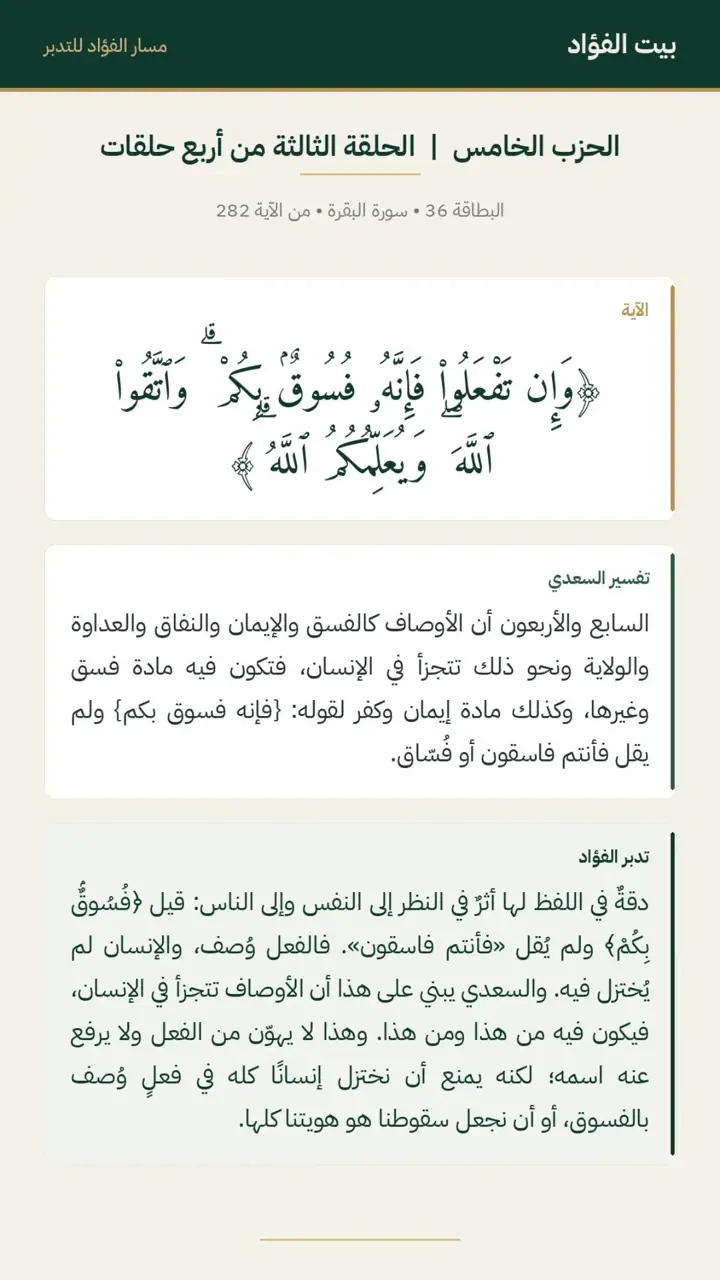 بيت الفؤاد
مسار الفؤاد للتدبر
الحزب الخامس | الحلقة الثالثة من أربع حلقات
البطاقة 36 • سورة البقرة • من الآية 282
الآية
﴿وَإِن تَفْعَلُوا۟ فَإِنَّهُۥ فُسُوقٌۢ بِكُمْ ۗ وَٱتَّقُوا۟
ٱللَّهَ ۖ وَيُعَلِّمُكُمُ ٱللَّهُ ۗ ﴾
تفسير السعدي
السابع والأربعون أن الأوصاف كالفسق والإيمان والنفاق والعداوة
والولاية ونحو ذلك تتجزأ في الإنسان، فتكون فيه مادة فسق
وغيرها، وكذلك مادة إيمان وكفر لقوله: {فإنه فسوق بكم} ولم
يقل فأنتم فاسقون أو فُسّاق.
تدبر الفؤاد
دقةٌ في اللفظ لها أثرٌ في النظر إلى النفس وإلى الناس: قيل ﴿فُسُوقٌۢ
بِكُمْ﴾ ولم يُقل «فأنتم فاسقون». فالفعل وُصف، والإنسان لم
يُختزل فيه. والسعدي يبني على هذا أن الأوصاف تتجزأ في الإنسان،
فيكون فيه من هذا ومن هذا. وهذا لا يهوّن من الفعل ولا يرفع
عنه اسمه؛ لكنه يمنع أن نختزل إنسانًا كله في فعلٍ وُصف
بالفسوق، أو أن نجعل سقوطنا هو هويتنا كلها.